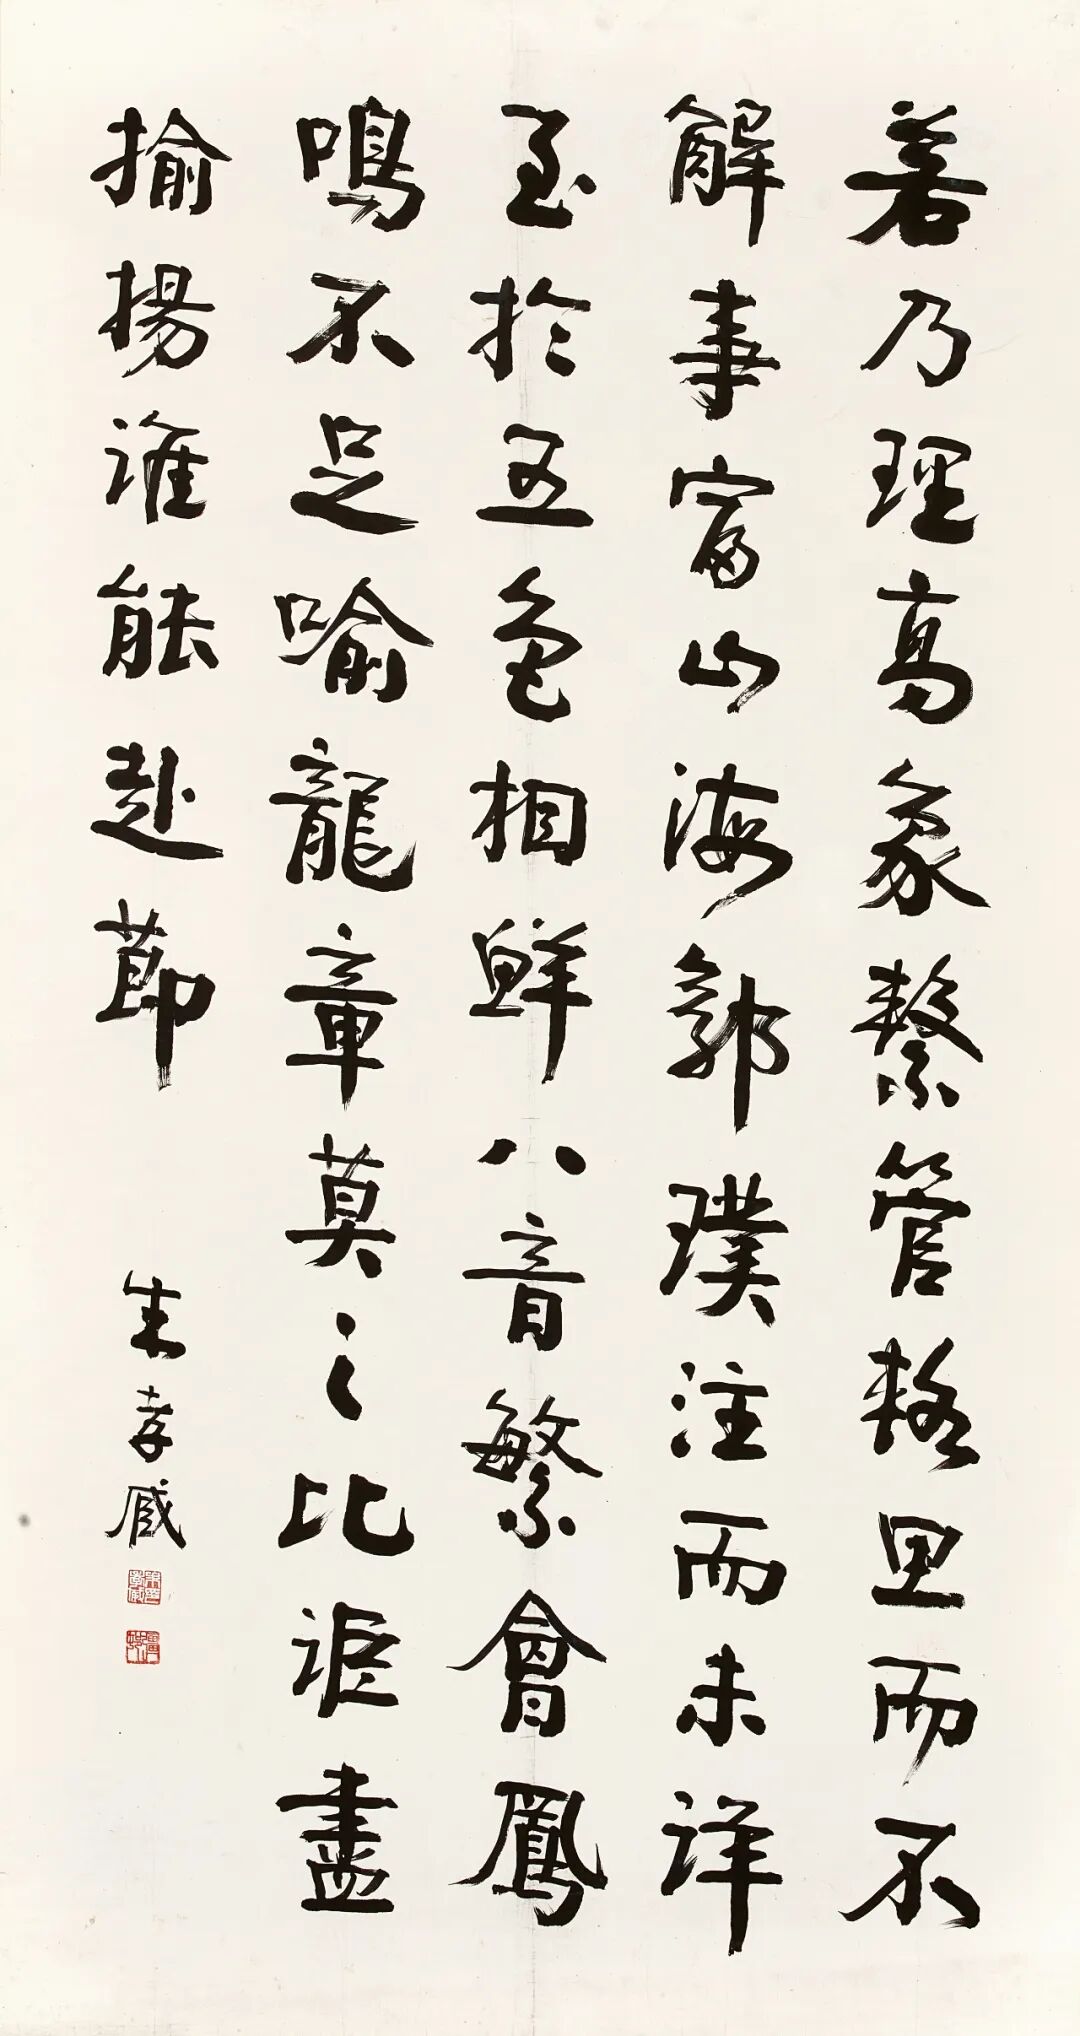 若乃理高象繫管輅思而不
解事富山海郭璞注而未詳
至於五色相鮮八音繁會鳳
鳴不足喻龍章莫之比詎盡
揄揚誰能赴節
朱孝臧